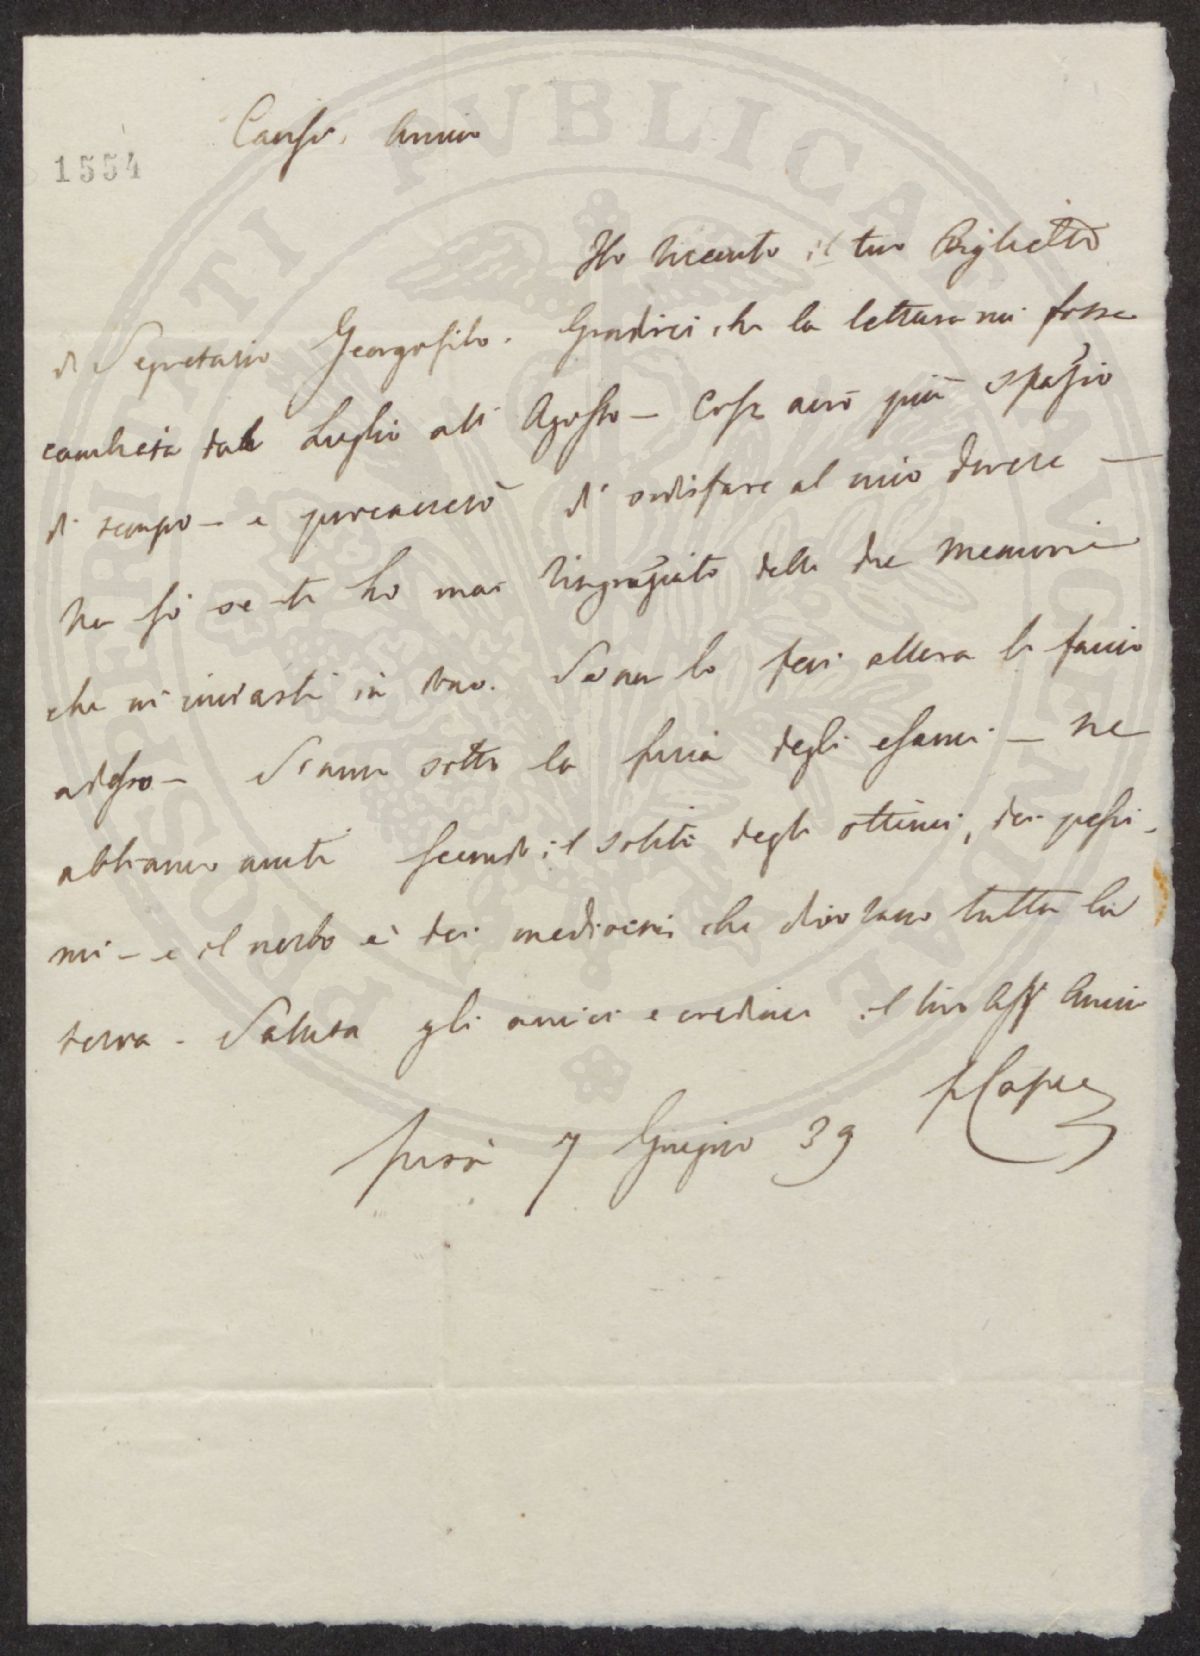 1554
Cariss. Amico
Ho ricevuto il tuo Biglietto
di Segretario Georgofilo. Gradirei che la lettura mi fosse
cambiata dal Luglio all' Agosto – Così avrò più spazio
di tempo – e procaccerò di sodisfare al mio dovere –
Non so se ti ho mai ringraziato delle due Memorie
che mi inviasti in dono. Se non lo feci allora lo faccio
adesso – Siamo sotto la furia degli esami – ne
abbiamo avuti secondo il solito degli ottimi, dei pessi-
mi – e il nerbo è dei mediocri che divorano tutta la
terra – Saluta gli amici e credimi il tuo Aff Amico
Pisa 7 Giugno 39
POSPERITATI PUBLICAE AUGENDAE